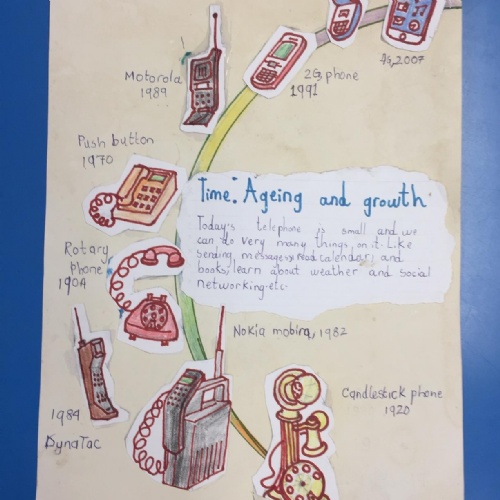 4G, 2007
Motorola
1989
2G, phone
1991
Push button
1970
Time: Ageing and growth
Today's telephone is small and we
can do very many things on it. Like
sending, messages, read calendar, and
books, learn about weather and social
networking etc.
Rotary
phone
1904
Nokia mobira, 1982
Candlestick phone
1920
1984
DynaTac